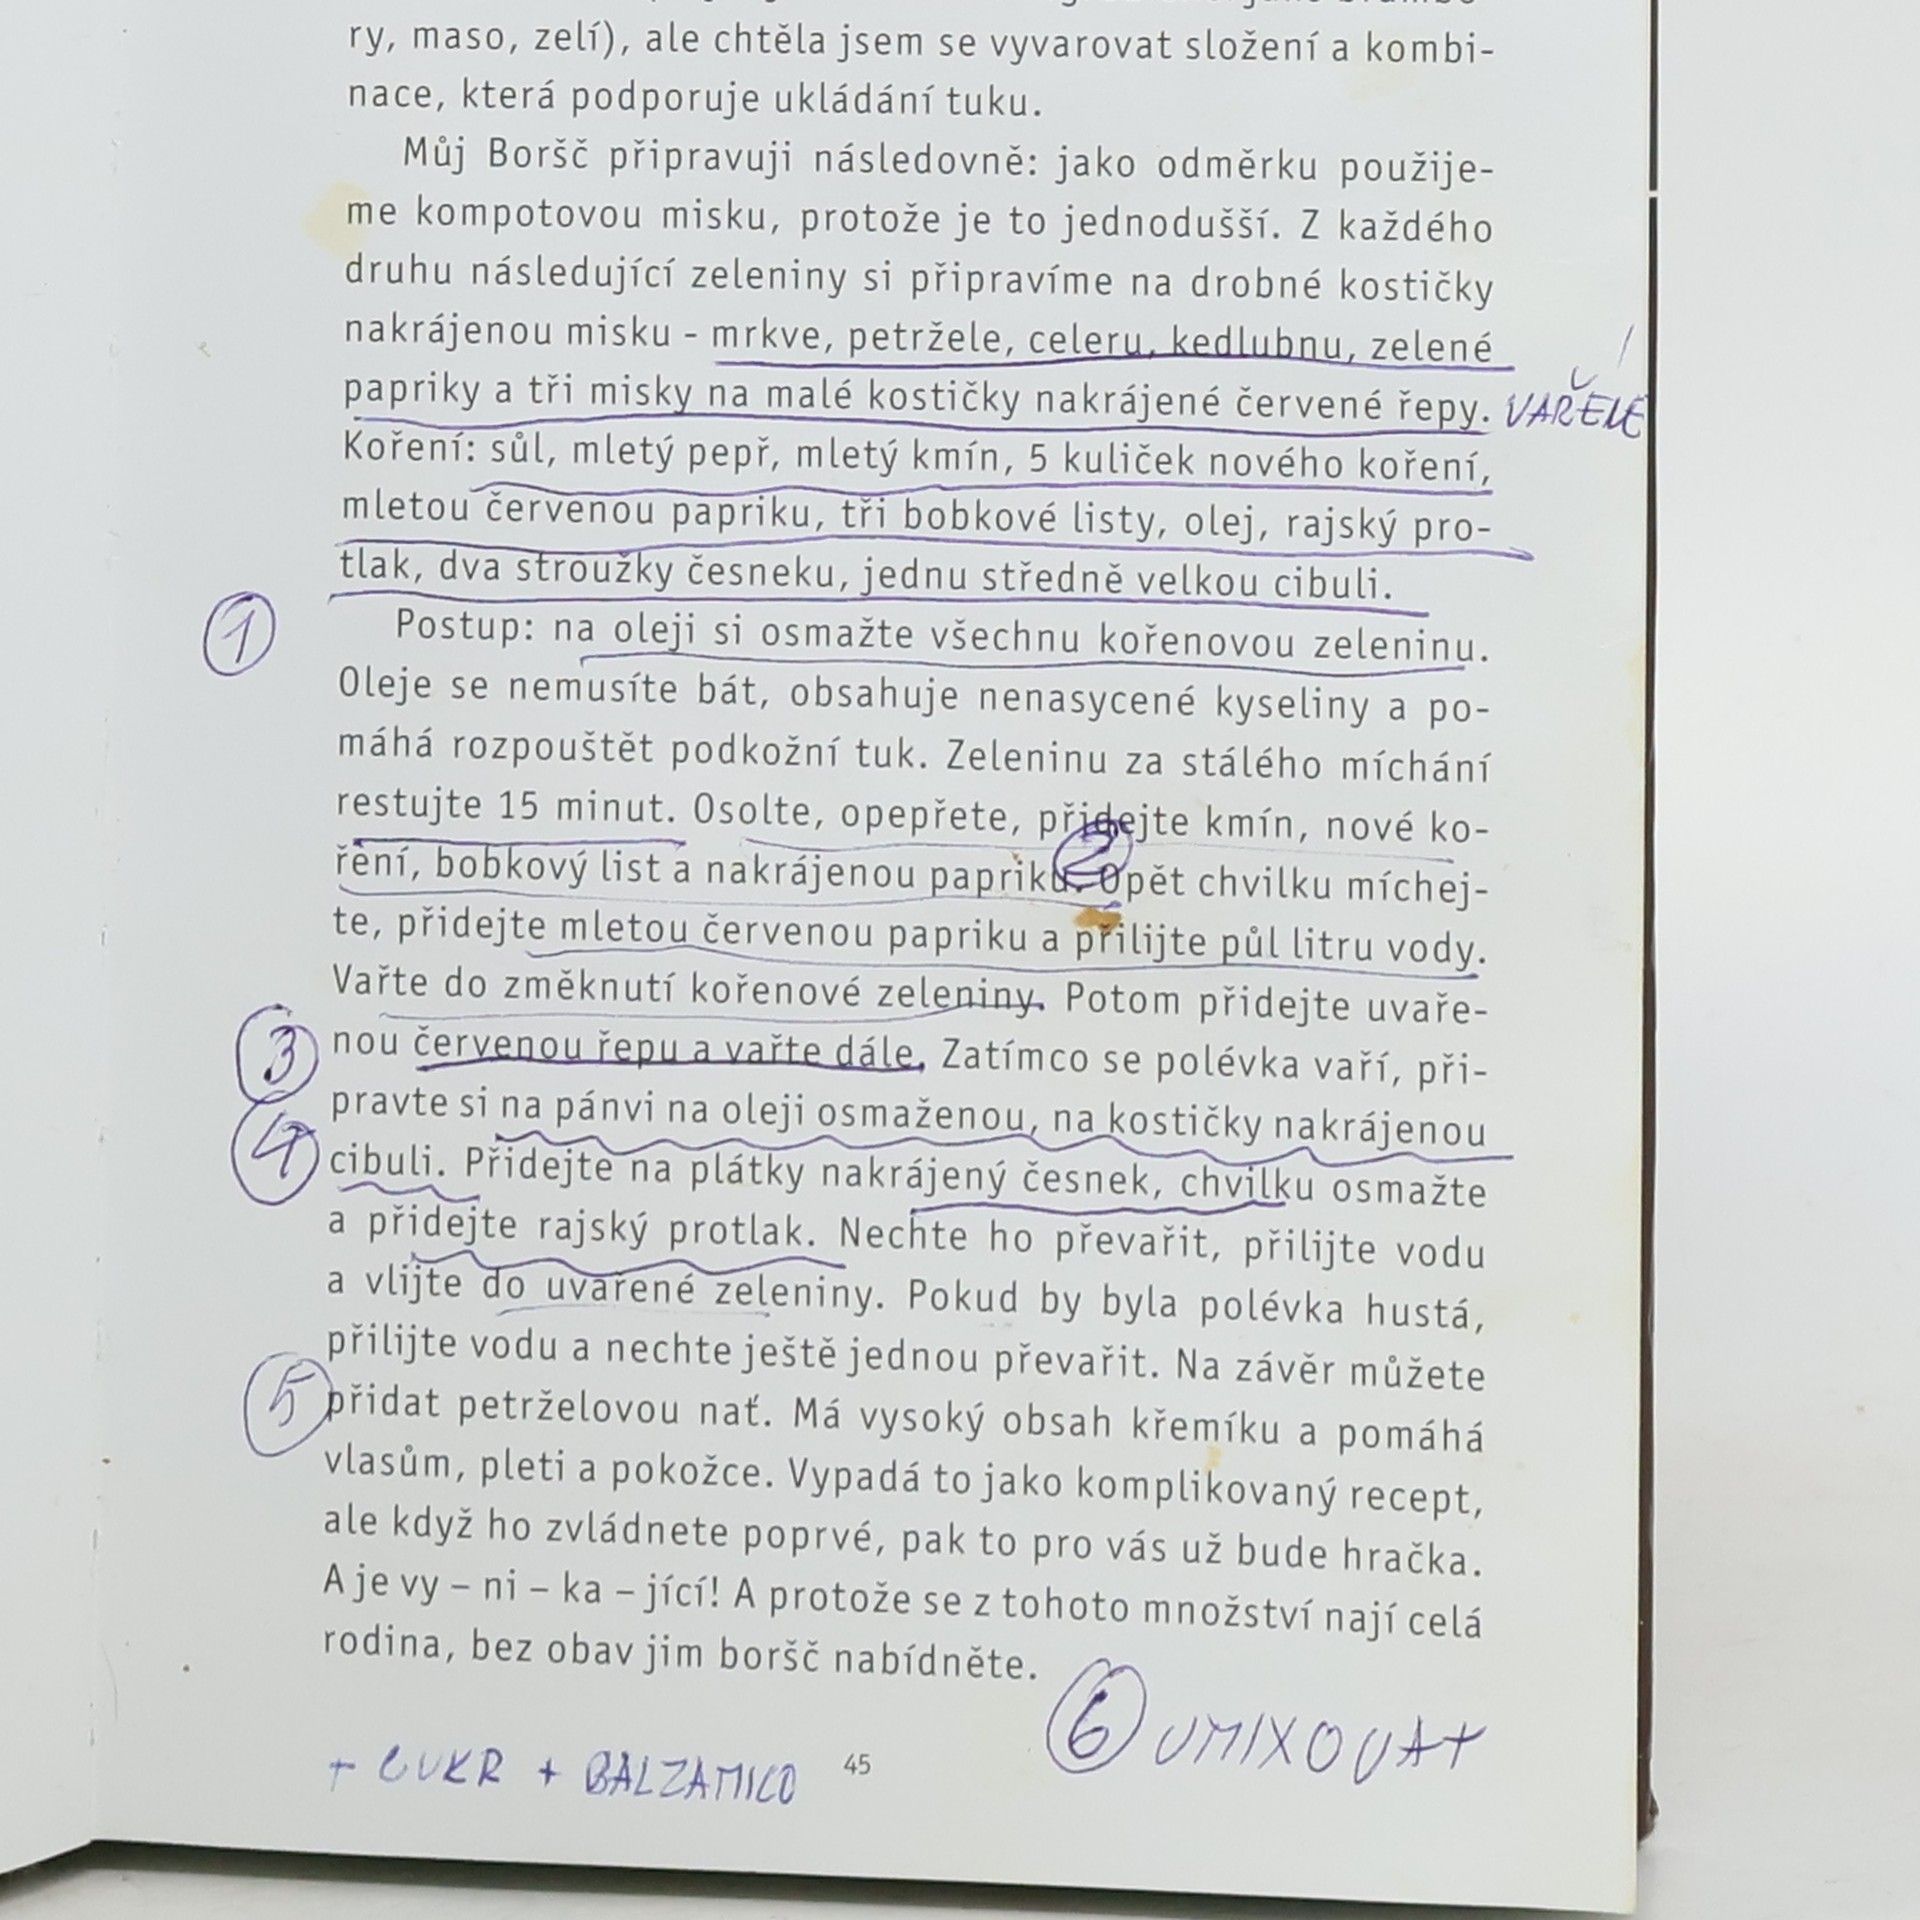 ry, maso, zelí), ale chtěla jsem se vyvarovat složení a kombi-
nace, která podporuje ukládání tuku.
Můj Boršč připravuji následovně: jako odměrku použije-
me kompotovou misku, protože je to jednodušší. Z každého
druhu následující zeleniny si připravíme na drobné kostičky
nakrájenou misku - mrkve, petržele, celeru, kedlubnu, zelené
papriky a tři misky na malé kostičky nakrájené červené řepy. VAŘELÉ
Koření: sůl, mletý pepř, mletý kmín, 5 kuliček nového koření,
mletou červenou papriku, tři bobkové listy, olej, rajský pro-
tlak, dva stroužky česneku, jednu středně velkou cibuli.
1 Postup: na oleji si osmažte všechnu kořenovou zeleninu.
Oleje se nemusíte bát, obsahuje nenasycené kyseliny a po-
máhá rozpouštět podkožní tuk. Zeleninu za stálého míchání
restujte 15 minut. Osolte, opepřete, přidejte kmín, nové ko-
ření, bobkový list a nakrájenou papriku. 2 Opět chvilku míchej-
te, přidejte mletou červenou papriku a přilijte půl litru vody.
Vařte do změknutí kořenové zeleniny. Potom přidejte uvaře-
3 nou červenou řepu a vařte dále. Zatímco se polévka vaří, při-
pravte si na pánvi na oleji osmaženou, na kostičky nakrájenou
4 cibuli. Přidejte na plátky nakrájený česnek, chvilku osmažte
a přidejte rajský protlak. Nechte ho převařit, přilijte vodu
a vlijte do uvařené zeleniny. Pokud by byla polévka hustá,
přilijte vodu a nechte ještě jednou převařit. Na závěr můžete
5 přidat petrželovou nať. Má vysoký obsah křemíku a pomáhá
vlasům, pleti a pokožce. Vypadá to jako komplikovaný recept,
ale když ho zvládnete poprvé, pak to pro vás už bude hračka.
A je vy – ni – ka – jící! A protože se z tohoto množství nají celá
rodina, bez obav jim boršč nabídněte.
6 UMIXOVAT
+ CUKR + BALZAMICO
45